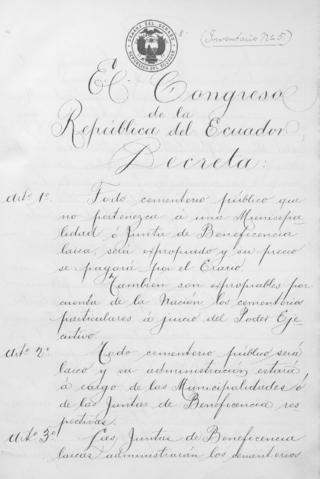 (Inventario No 5)
El Congreso
de la
República del Ecuador
Decreta:
Arto. 1o. Todo cementerio público que
no pertenezca á una Municipa-
lidad ó Junta de Beneficencia
laica, será expropiado y su precio
se pagará por el Erario.
Tambien son expropiables por
cuenta de la Nación los cementerios
particulares á juicio del Poder Eje-
cutivo.
Arto. 2o. Todo cementerio público será
laico y su administración estará
á cargo de las Municipalidades ó
de las Juntas de Beneficencia res-
pectivas.
Arto. 3o. Las Juntas de Beneficencia
laicas administrarán los cementerios